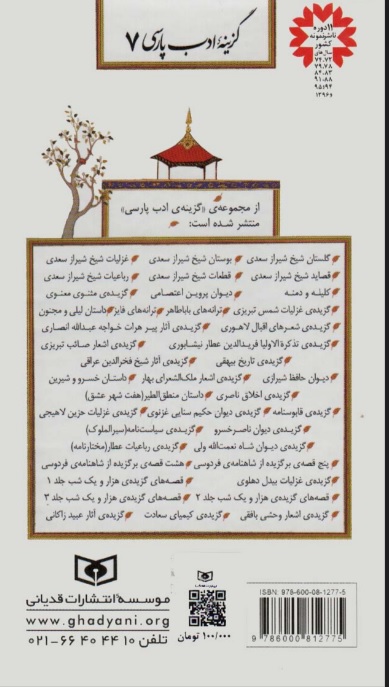 گزینهٔ ادب پارسی ۷
۱۱ دوره
ناشر نمونه
کشور
سال‌های
۷۴،۷۲
۷۹،۷۸
۸۴،۸۳
۹۱،۸۸
۹۵،۹۴
و ۱۳۹۶
از مجموعه‌ی «گزینه‌ی ادب پارسی»
منتشر شده است:
گلستان شیخ شیراز سعدی بوستان شیخ شیراز سعدی غزلیات شیخ شیراز سعدی
قصاید شیخ شیراز سعدی قطعات شیخ شیراز سعدی رباعیات شیخ شیراز سعدی
کلیله و دمنه دیوان پروین اعتصامی گزیده‌ی مثنوی معنوی
گزیده‌ی غزلیات شمس تبریزی ترانه‌های باباطاهر ترانه‌های فایز داستان لیلی و مجنون
گزیده‌ی شعرهای اقبال لاهوری گزیده‌ی آثار پیر هرات خواجه عبدالله انصاری
گزیده‌ی تذکرة الاولیا فریدالدین عطار نیشابوری گزیده‌ی اشعار صائب تبریزی
گزیده‌ی تاریخ بیهقی گزیده‌ی آثار شیخ فخرالدین عراقی
دیوان حافظ شیرازی گزیده‌ی اشعار ملک‌الشعرای بهار داستان خسرو و شیرین
گزیده‌ی اخلاق ناصری داستان منطق‌الطیر(هفت شهر عشق)
گزیده‌ی قابوسنامه گزیده‌ی دیوان حکیم سنایی غزنوی گزیده‌ی غزلیات حزین لاهیجی
گزیده‌ی دیوان ناصرخسرو گزیده‌ی سیاست‌نامه(سیرالملوک)
گزیده‌ی دیوان شاه نعمت‌الله ولی گزیده‌ی رباعیات عطار(مختارنامه)
پنج قصه‌ی برگزیده از شاهنامه‌ی فردوسی هشت قصه‌ی برگزیده از شاهنامه‌ی فردوسی
گزیده‌ی غزلیات بیدل دهلوی قصه‌های گزیده‌ی هزار و یک شب جلد ۱
قصه‌های گزیده‌ی هزار و یک شب جلد ۲ قصه‌های گزیده‌ی هزار و یک شب جلد ۳
گزیده‌ی اشعار وحشی بافقی گزیده‌ی کیمیای سعادت گزیده‌ی آثار عبید زاکانی
موسسهٔ انتشارات قدیانی
www.ghadyani.org
تلفن ۱۰ ۴۴ ۴۰ ۶۶-۰۲۱
۱۰۰/۰۰۰ تومان
ISBN: 978-600-08-1277-5
9 786000 812775